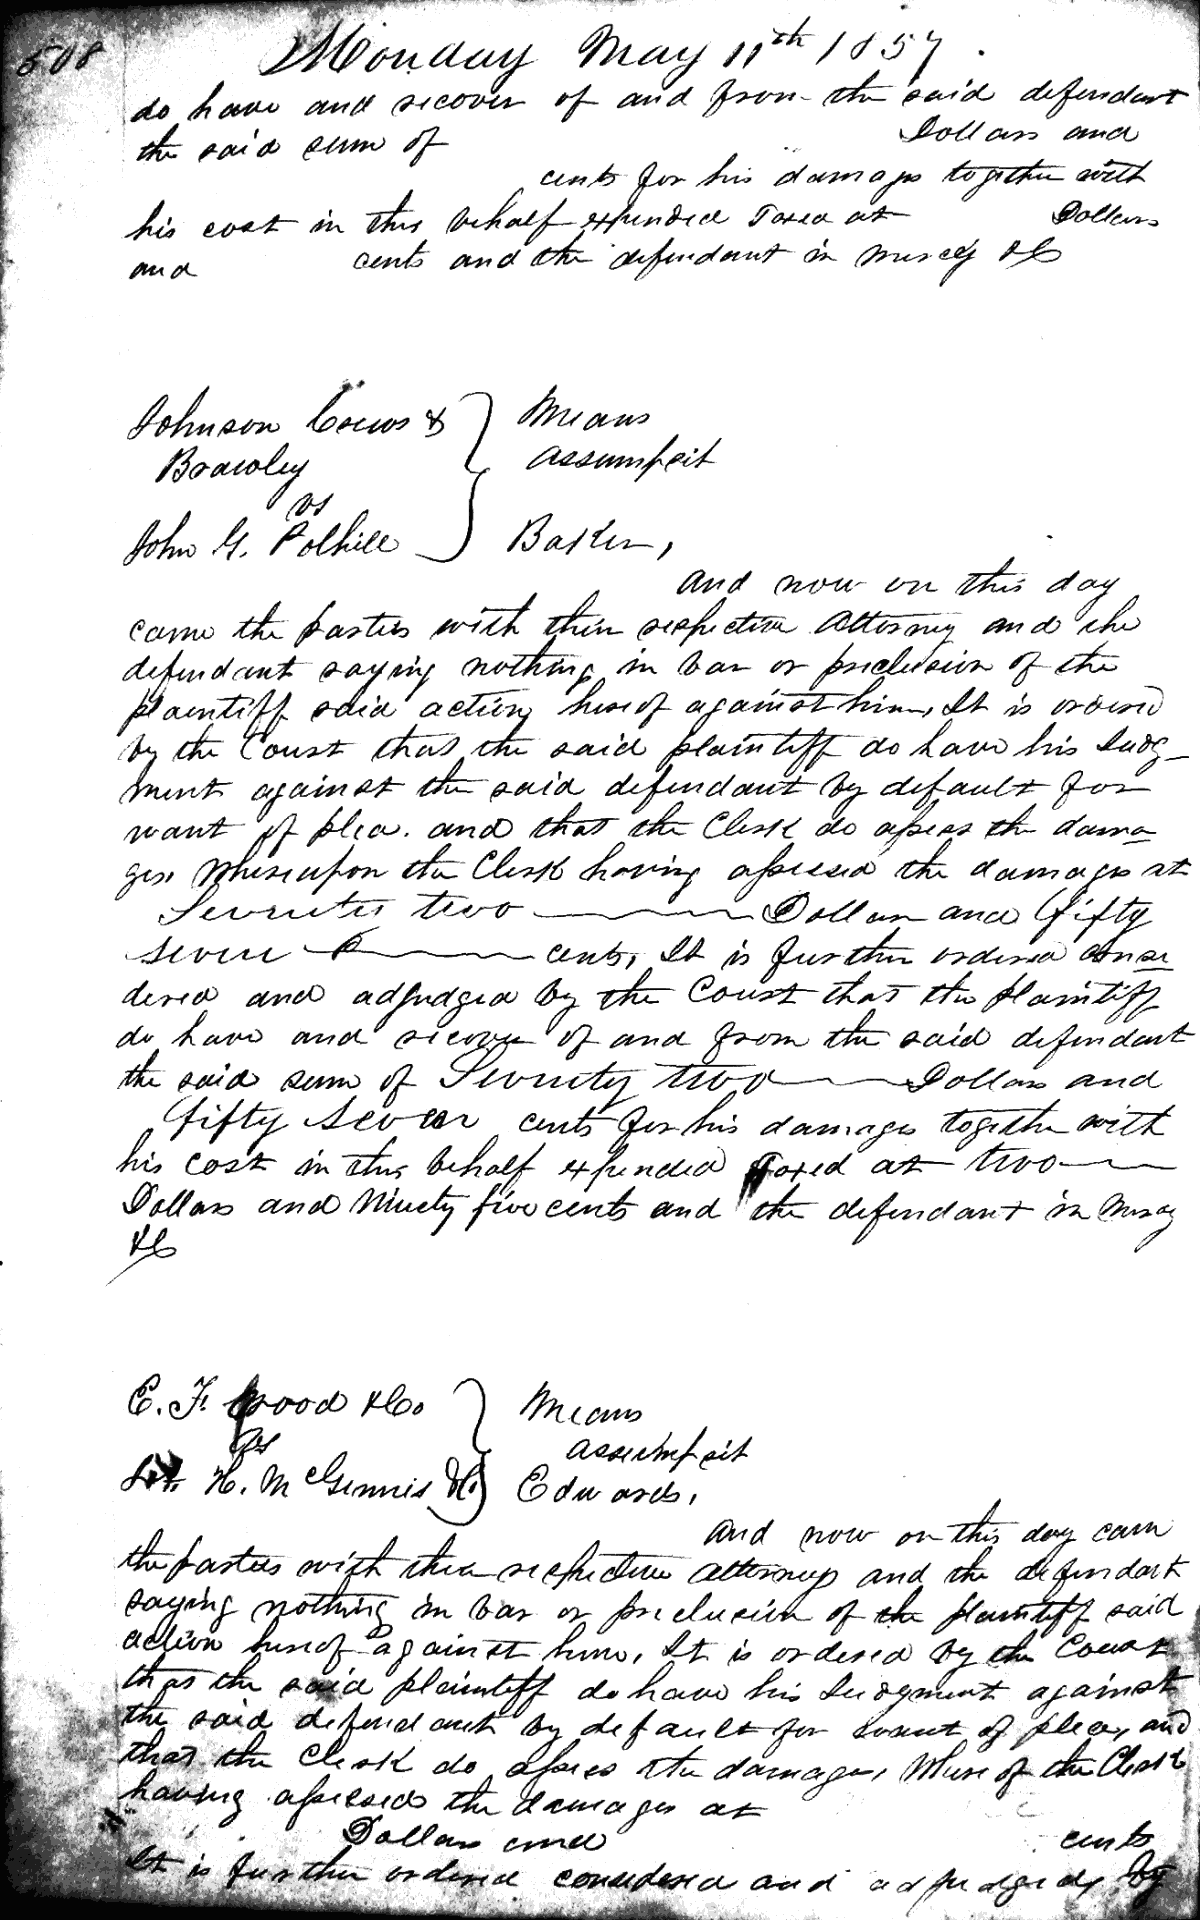 508 Monday May 11th 1857.
do have and recover of and from the said defendant
the said sum of Dollars and
cents for his damages together with
his cost in this behalf expended Taxed at Dollars
and cents and the defendant in mercy &c
Johnson Crews & } Means
Brawley Assumpsit
vs
John G. Polhill Baker,
And now on this day
came the parties with their respective Attorney and the
defendant saying nothing in bar or preclusion of the
plaintiff said action hereof against him, It is ordered
by the Court that the said plaintiff do have his Judg-
ment against the said defendant by default for
want of plea. and that the Clerk do assess the dama-
ges, Whereupon the Clerk having assessed the damages at
Seventy two Dollars and fifty
seven cents, It is further ordered consi-
dered and adjudged by the Court that the plaintiff
do have and recover of and from the said defendant
the said sum of Seventy two Dollars and
fifty seven cents for his damages together with
his cost in this behalf expended Taxed at two
Dollars and Ninety five cents and the defendant in mercy
&c
E. F. Wood & Co } Means
vs Assumpsit
H. McGinnis Edwards,
And now on this day cam
the parties with their respective attorneys and the defendant
saying nothing in bar or preclusion of the plaintiff said
action hereof against him, It is ordered by the Court
that the said plaintiff do have his Judgment against
the said defendant by default for want of plea, and
that the Clerk do assess the damages, Whereof the Clerk
having assessed the damages at
Dollars and cents
It is further ordered considered and adjudged, by